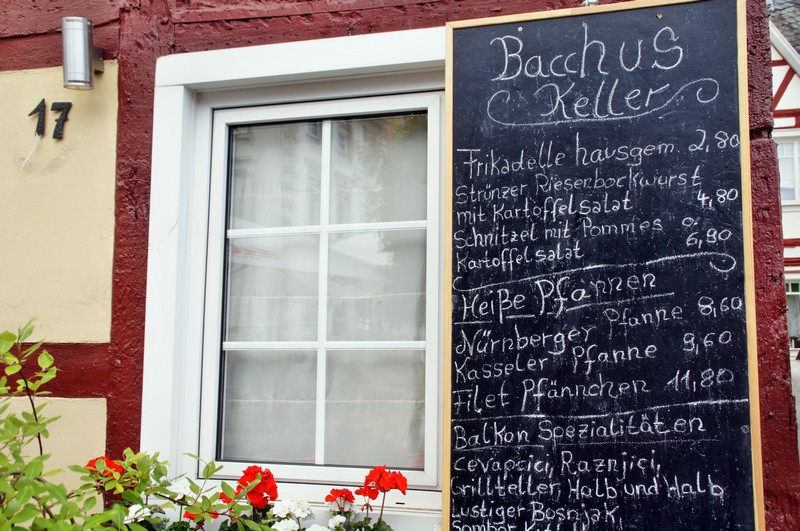 17
Bacchus
Keller
Frikadelle hausgem. 2,80
Strünzer Riesenbockwurst
mit Kartoffelsalat 4,80
Schnitzel mit Pommes o.
Kartoffelsalat 6,90
Heiße Pfannen
Nürnberger Pfanne 8,60
Kasseler Pfanne 9,60
Filet Pfännchen 11,80
Balkon Spezialitäten
Cevapcici, Raznjici,
Grillteller, Halb und Halb
Lustiger Bosnjak,